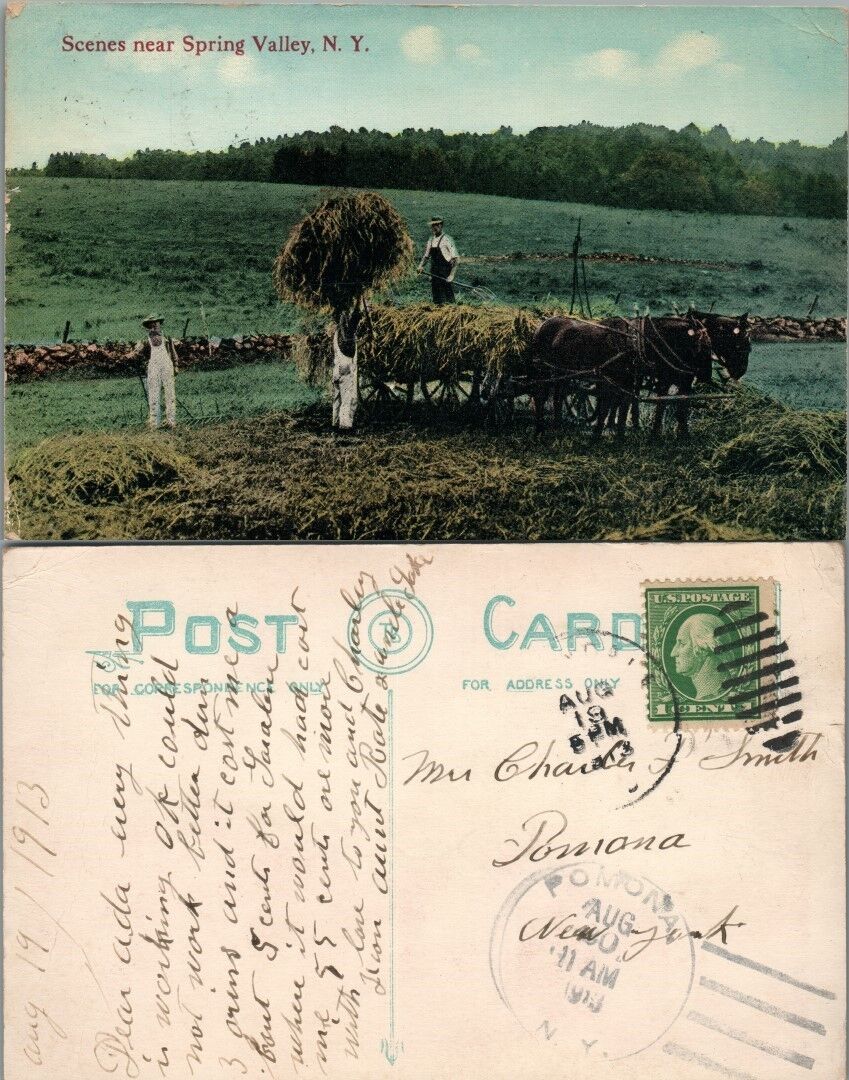 Scenes near Spring Valley, N. Y.
POST CARD
FOR CORRESPONDENCE ONLY
FOR ADDRESS ONLY
U.S. POSTAGE
1 CENT 1
AUG
19
8 PM
1913
Mrs Charles Smith
Pomona
New York
POMONA
AUG
20
11 AM
1913
N. Y.
aug 19 / 1913
Dear ada every thing
is working ok could
not work better dun
3 and it cost me a
bout 5 cents for
where it would had cost
me 55 cents ore more
with love to you and Charley
from aunt Kate